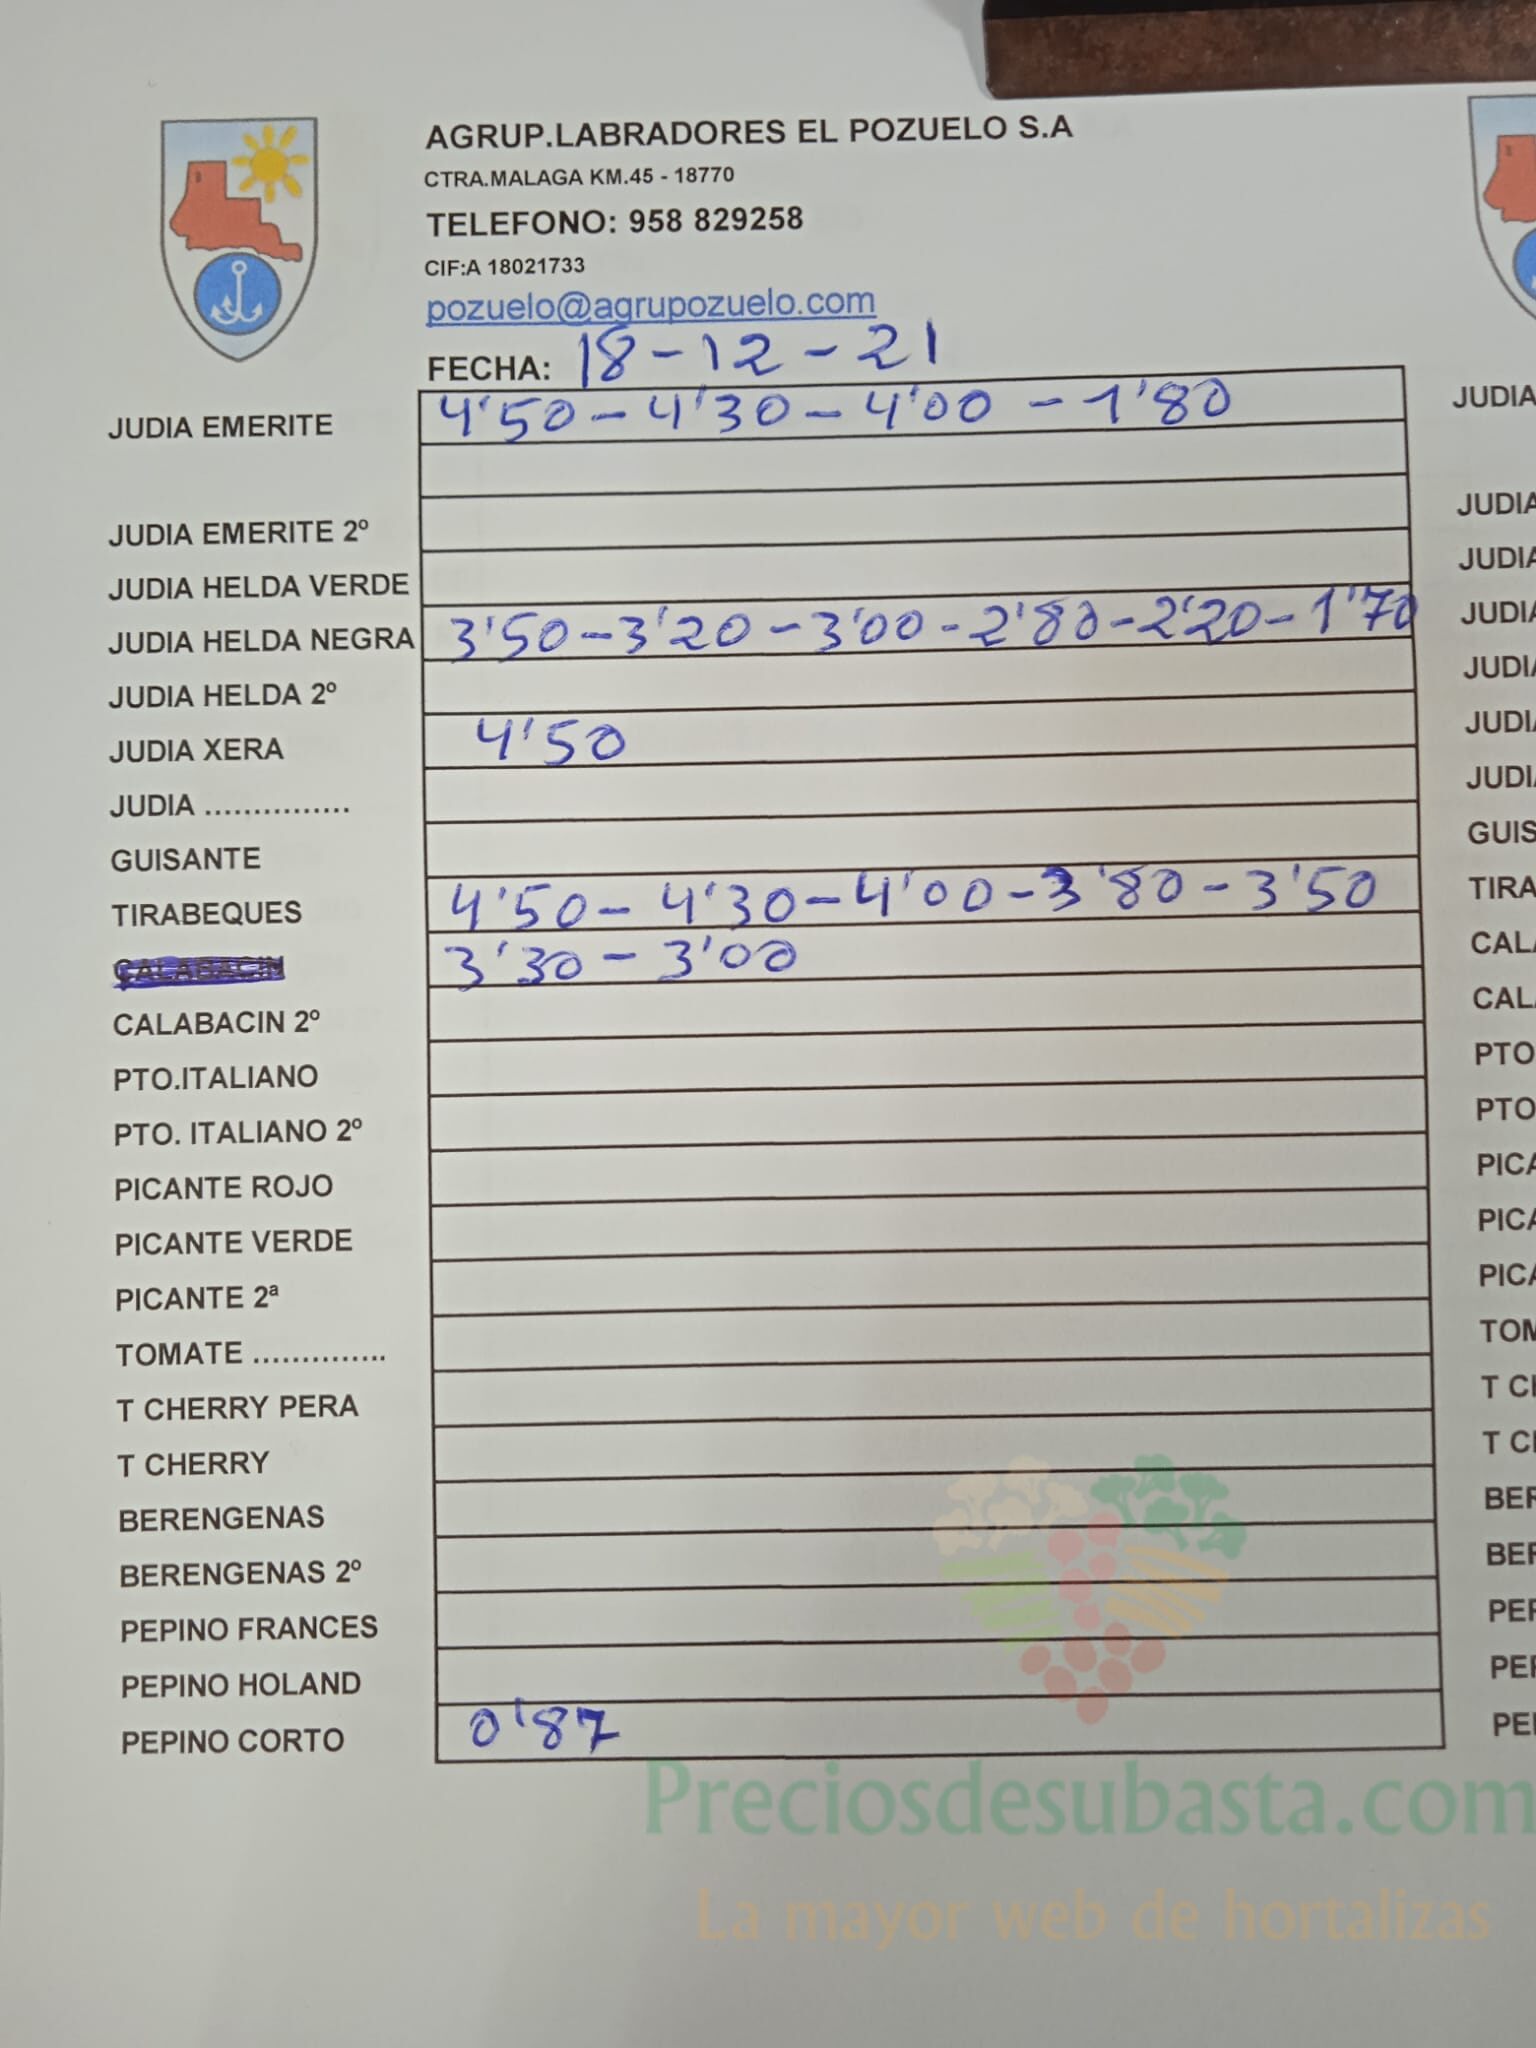 AGRUP.LABRADORES EL POZUELO S.A
CTRA.MALAGA KM.45 - 18770
TELEFONO: 958 829258
CIF:A 18021733
pozuelo@agrupozuelo.com
FECHA: 18-12-21
JUDIA EMERITE 4'50-4'30-4'00-1'80 JUDIA
JUDIA EMERITE 2º JUDIA
JUDIA HELDA VERDE JUDIA
JUDIA HELDA NEGRA 3'50-3'20-3'00-2'80-2'20-1'70 JUDIA
JUDIA HELDA 2º JUDIA
JUDIA XERA 4'50 JUDIA
JUDIA ............... JUDIA
GUISANTE GUIS
TIRABEQUES 4'50-4'30-4'00-3'80-3'50 TIRA
CALABACIN 3'30-3'00 CALA
CALABACIN 2º CALA
PTO.ITALIANO PTO
PTO. ITALIANO 2º PTO
PICANTE ROJO PICA
PICANTE VERDE PICA
PICANTE 2ª PICA
TOMATE .............. TOM
T CHERRY PERA T CH
T CHERRY T CH
BERENGENAS BER
BERENGENAS 2º BER
PEPINO FRANCES PEP
PEPINO HOLAND PEP
PEPINO CORTO 0'87 PEP
Preciosdesubasta.com
La mayor web de hortalizas